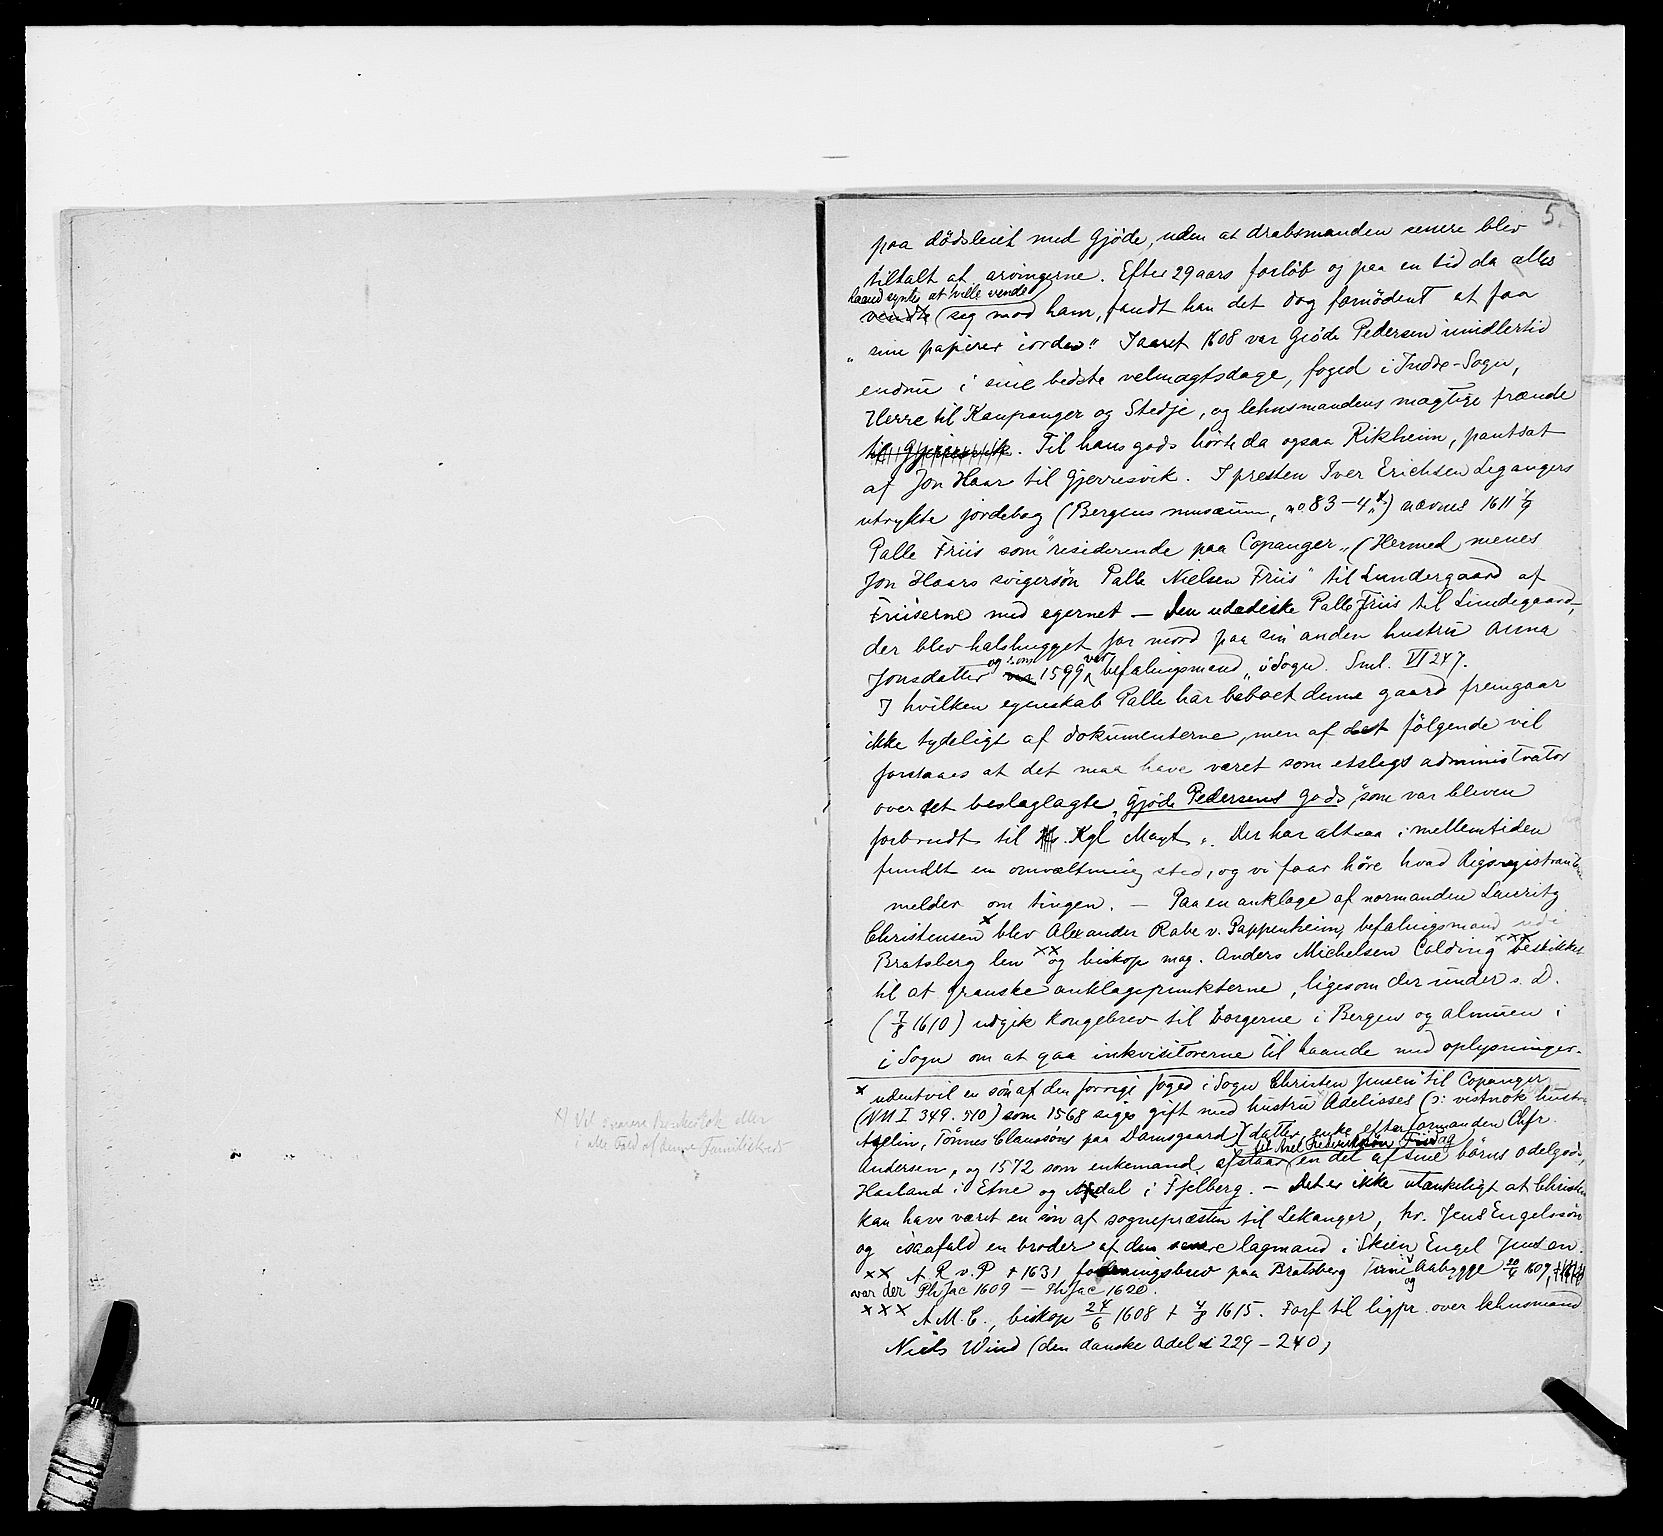 5.
paa dödsleiet med Gjöde, uden at drabsmanden senere blev
tiltalt af arvingerne. Efter 29 aars forløb og paa en tid da alles
haand syntes at ville vende
vendte (sig mod ham, fandt han det dog fornödent at faa
„ sine papirer iorden" I aaret 1608 var Gjöde Pedersen imidlertid
endnu i sine bedste velmagtsdage, foged i Indre-Sogn,
Herre til Kaupanger og Stedje, og lehnsmandens mægtige frænde
til Gjerresvik. Til hans gods hörte da ogsaa Rikheim, pantsat
af Jon Haar til Gjerresvik. I presten Iver Erichsen Legangers
utrykte jordebog (Bergens musæum, no 83-4) nævnes 1611
Palle Friis som "residerende paa Copanger„ (Hermed menes
Jon Haars svigersön Palle Nielsen Friis" til Lundergaard af
Friiserne med egernet — Den udædiske Palle Friis til Lundegaard,
der blev halshugget for mord paa sin anden hustru Anna
Jonsdatter og som var 1599 var befalingsmand „i Sogn. Sml. VI 247.
I hvilken egenskab Palle har beboet denne gaard fremgaar
ikke tydeligt af dokumenterne, men af det fölgende vil
forstaaes at det maa have været som etslags administrator
over det beslaglagte „Gjöde Pedersens gods, som var bleven
forbrudt til Hs. Kgl Mayt „. Der har altsaa imellemtiden
fundet en omvæltning sted, og vi faar höre hvad Rigsregistranterne
melder om tingen. — Paa en anklage af normanden Lauritz
Christensen x blev Alexander Rabe v. Pappenheim, befalingsmand udi
Bratsberg len xx og biskop mag. Anders Michelsen Colding xxx beskikket
til at granske anklagepunkterne, ligesom der under s. D.
(7/8 1610) udgik kongebrev til borgerne i Bergen og almuen i
i Sogn om at gaa inkvisitorerne til haande med oplysninger.
x udentvil en sön af den forrige foged i Sogn Christen Jensen til Copanger
(NM I. 349. 510) som 1568 siges gift med hustru Adelisses (ɔ: vistnok hustru
Adelin, Tönnes Claussöns paa Damsgaard) datter, enke efter formanden Chfr.
til Axel Frederiksön
Andersen, og 1572 som enkemand, afstaar en del af sine börns odelgods,
Haaland i Etne og dal i Fjelberg. — Det er ikke utænkeligt at Christen
kan have været en sön af sognepræsten til Lekanger, hr. Jens Engelssön
og isaafald en broder af den senere lagmand i Skien Engel Jensen.
xx A R v. P † 1631, forleningsbrev paa Bratsberg og aabygge 1609,
var der Ph Jac 1609 — Ph Jac 1620.
xxx A. M. C., biskop 24/6 1608 † 4/8 1615. Forf til ligpr. over lehnsmand
Niels Wind (den danske adel 229 - 240)
x) Vil eller
i alle Fald af denne